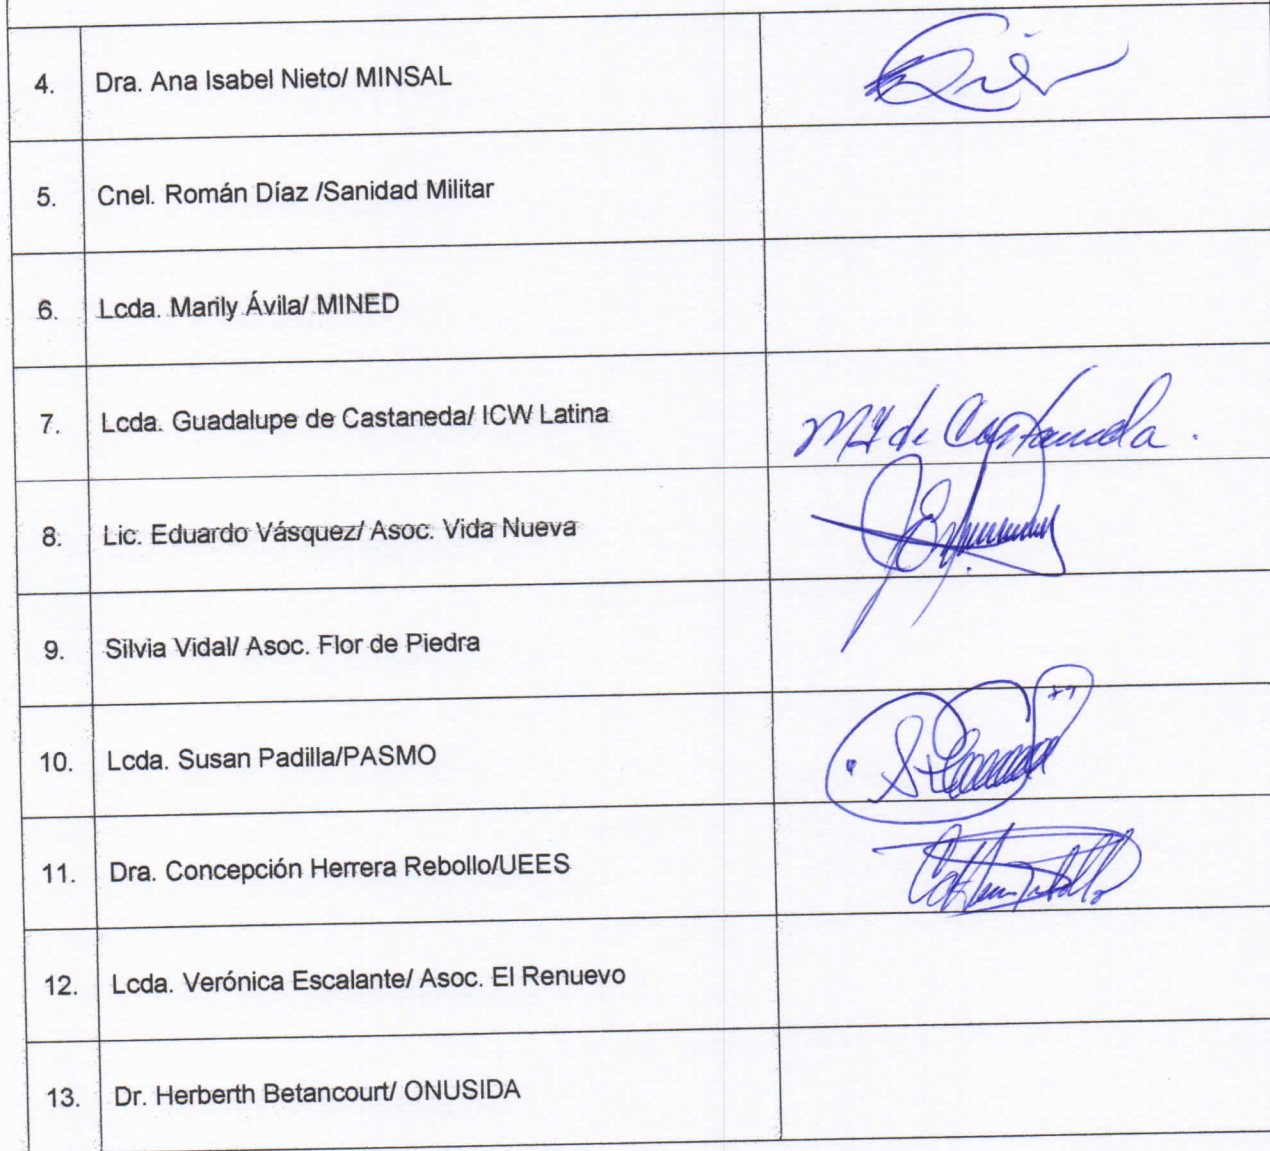 4. Dra. Ana Isabel Nieto/ MINSAL
5. Cnel. Román Díaz /Sanidad Militar
6. Lcda. Marily Ávila/ MINED
7. Lcda. Guadalupe de Castaneda/ ICW Latina de Castaneda.
8. Lic. Eduardo Vásquez/ Asoc. Vida Nueva
9. Silvia Vidal/ Asoc. Flor de Piedra
10. Lcda. Susan Padilla/PASMO
11. Dra. Concepción Herrera Rebollo/UEES
12. Lcda. Verónica Escalante/ Asoc. El Renuevo
13. Dr. Herberth Betancourt/ ONUSIDA